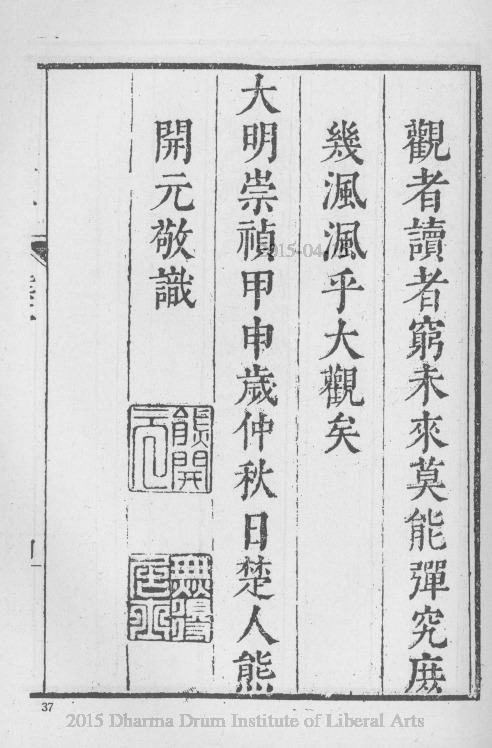 觀者讀者窮未來莫能彈究庶
幾渢渢乎大觀矣
大明崇禎甲申歲仲秋日楚人熊
開元敬識
熊開元
37
2015 Dharma Drum Institute of Liberal Arts